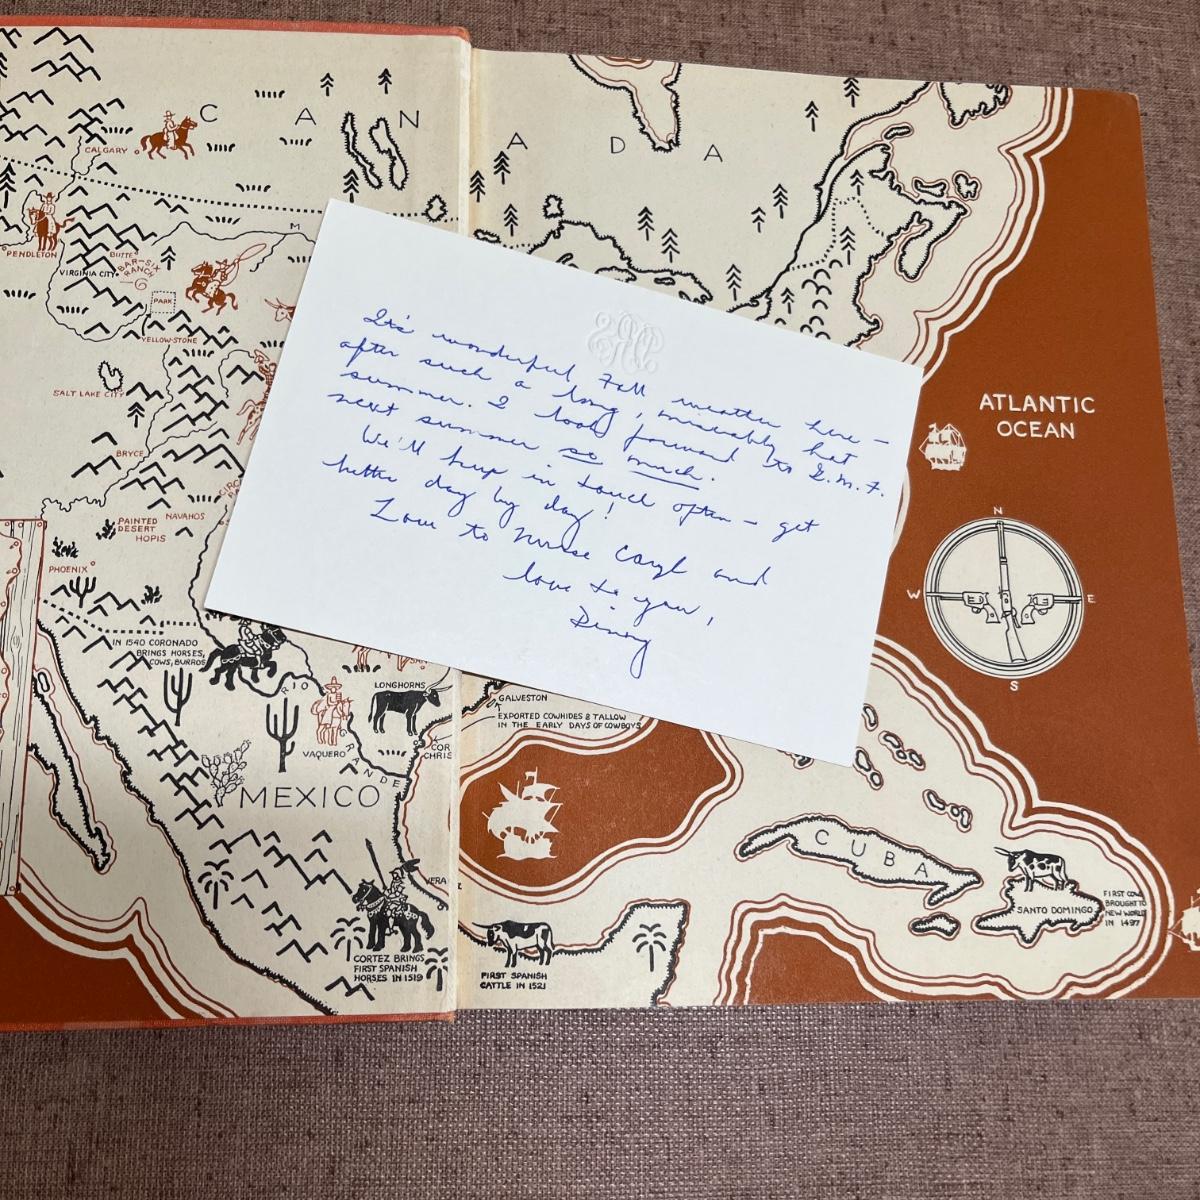 CANADA
CALGARY
PENDLETON
BUTTE
VIRGINIA CITY
BAR-SIX
RANCH
6
M
PARK
YELLOW-STONE
SALT LAKE CITY
BRYCE
PAINTED
DESERT
NAVAHOS
HOPIS
PHOENIX
IN 1540 CORONADO
BRINGS HORSES,
COWS, BURROS
RIO GRANDE
LONGHORNS
VAQUERO
COR
CHRIS
MEXICO
VERA
CORTEZ BRINGS
FIRST SPANISH
HORSES IN 1519
It's wonderful Fall weather here –
after such a long, miserably hot
summer. I look forward to E.M.F.
next summer so much.
We'll keep in touch often – get
better day by day!
Love to Nurse Caryl and
love to you,
Dinny
GALVESTON
EXPORTED COWHIDES & TALLOW
IN THE EARLY DAYS OF COWBOYS
Z
FIRST SPANISH
CATTLE IN 1521
ATLANTIC
OCEAN
N
W E
S
CUBA
SANTO DOMINGO
FIRST COW
BROUGHT TO
NEW WORLD
IN 1497